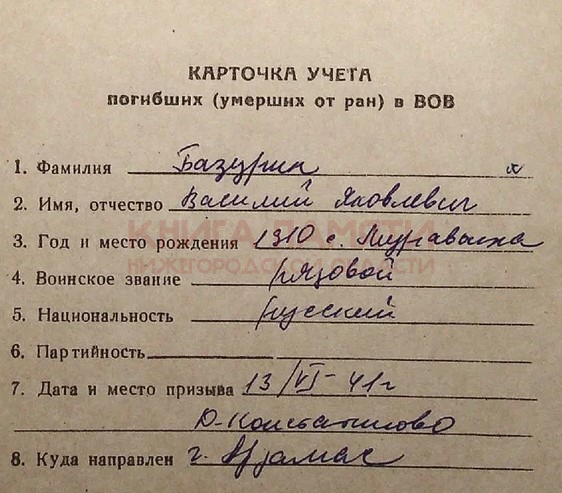 КАРТОЧКА УЧЕТА
погибших (умерших от ран) в ВОВ
1. Фамилия Базурин
2. Имя, отчество Василий Яковлевич
3. Год и место рождения 1910 с. Муравьиха
КНИГА ПАМЯТИ
НИЖЕГОРОДСКОЙ ОБЛАСТИ
4. Воинское звание рядовой
5. Национальность русский
6. Партийность
7. Дата и место призыва 13/VI-41г
Д-Константиново
8. Куда направлен г. Арзамас